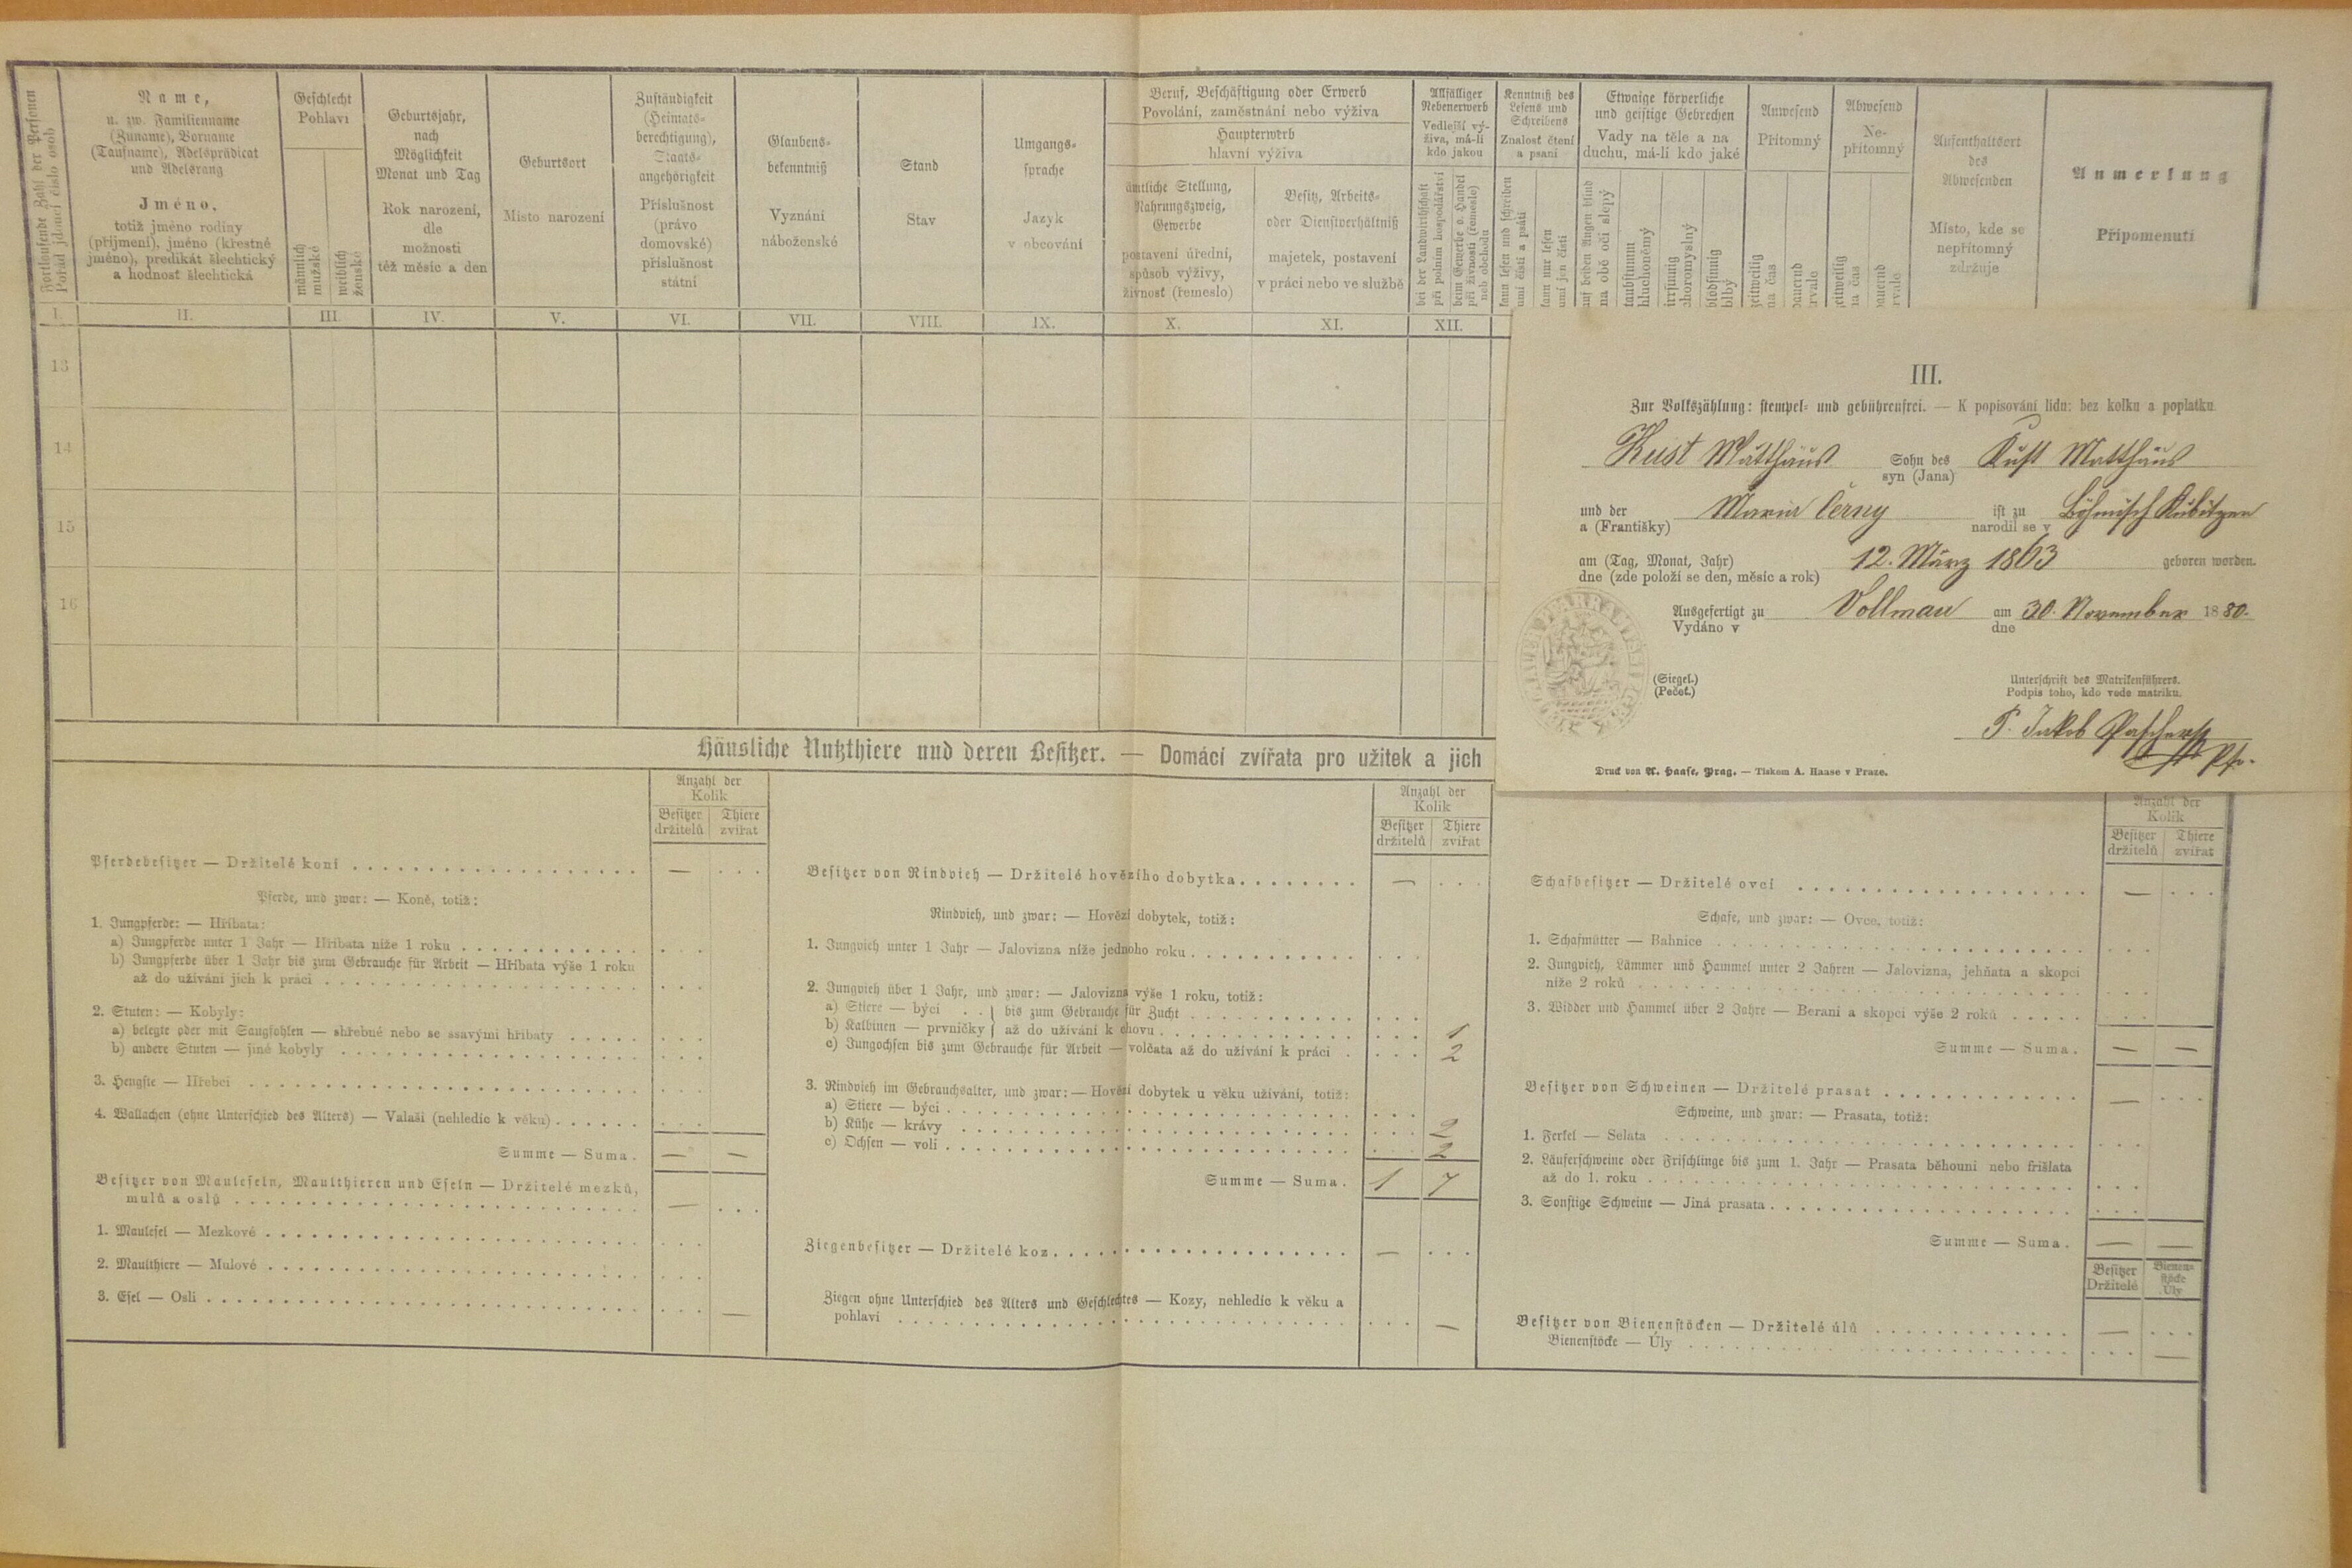 Fortlaufende Zahl der Personen
Pořád jdoucí číslo osob
Name,
u. zw. Familienname
(Zuname), Vorname
(Taufname), Adelsprädicat
und Adelsrang
Jméno,
totiž jméno rodiny
(příjmení), jméno (křestné
jméno), predikát šlechtický
a hodnosť šlechtická
Geschlecht
Pohlaví
männlich
mužské
weiblich
ženské
Geburtsjahr,
nach
Möglichkeit
Monat und Tag
Rok narození,
dle
možnosti
též měsíc a den
Geburtsort
Místo narození
Zuständigkeit
(Heimats-
berechtigung),
Staats-
angehörigkeit
Příslušnost
(právo
domovské)
příslušnost
státní
Glaubens-
bekenntniß
Vyznání
náboženské
Stand
Stav
Umgangs-
sprache
Jazyk
v obcování
Beruf, Beschäftigung oder Erwerb
Povolání, zaměstnání nebo výživa
Haupterwerb
hlavní výživa
ämtliche Stellung,
Nahrungszweig,
Gewerbe
postavení úřední,
spůsob výživy,
živnosť (řemeslo)
Besitz, Arbeits-
oder Dienstverhältniß
majetek, postavení
v práci nebo ve službě
Allfälliger
Nebenerwerb
Vedlejší vý-
živa, má-li
kdo jakou
bei der Landwirthschaft
při polním hospodářství
beim Gewerbe o. Handel
při živnosti (řemeslo)
neb obchodu
Kenntniß des
Lesens und
Schreibens
Znalosť čtení
a psaní
kann lesen und schreiben
umí čísti a psáti
kann nur lesen
umí jen čísti
Etwaige körperliche
und geistige Gebrechen
Vady na těle a na
duchu, má-li kdo jaké
auf beiden Augen blind
na obě oči slepý
taubstumm
hluchoněmý
irrsinnig
choromyslný
blödsinnig
blbý
Anwesend
Přítomný
zeitweilig
na čas
dauernd
trvale
Abwesend
Ne-
přítomný
zeitweilig
na čas
dauernd
trvale
Aufenthaltsort
des
Abwesenden
Místo, kde se
nepřítomný
zdržuje
Anmerkung
Připomenutí
I. II. III. IV. V. VI. VII. VIII. IX. X. XI. XII.
13
14
15
16
III.
Zur Volkszählung: stempel- und gebührenfrei. — K popisování lidu: bez kolku a poplatku.
Kust Matthäus Sohn des Kust Matthäus
syn (Jana)
und der Maria Černy ist zu Böhmisch Kubitzen
a (Františky) narodil se v
am (Tag, Monat, Jahr) 12. März 1863 geboren worden.
dne (zde položí se den, měsíc a rok)
Ausgefertigt zu Vollmau am 30. November 1880.
Vydáno v dne
(Siegel.)
(Pečeť.)
Unterschrift des Matrikenführers.
Podpis toho, kdo vede matriku.
P. Jakob Pascher
Pfr.
Druck von A. Haase, Prag. — Tiskem A. Haase v Praze.
Häusliche Nutzthiere und deren Besitzer. — Domácí zvířata pro užitek a jich
Anzahl der
Kolik
Besitzer Thiere
držitelů zvířat
Pferdebesitzer — Držitelé koní — . . .
Pferde, und zwar: — Koně, totiž:
1. Jungpferde: — Hříbata:
a) Jungpferde unter 1 Jahr — Hříbata níže 1 roku
b) Jungpferde über 1 Jahr bis zum Gebrauche für Arbeit — Hříbata výše 1 roku
až do užívání jich k práci
2. Stuten: — Kobyly:
a) belegte oder mit Saugfohlen — shřebné nebo se ssavými hříbaty
b) andere Stuten — jiné kobyly
3. Hengste — Hřebci
4. Wallachen (ohne Unterschied des Alters) — Valaši (nehledíc k věku)
Summe — Suma. — —
Besitzer von Mauleseln, Maulthieren und Eseln — Držitelé mezků,
mulů a oslů — . . .
1. Maulesel — Mezkové
2. Maulthiere — Mulové
3. Esel — Osli —
Anzahl der
Kolik
Besitzer Thiere
držitelů zvířat
Besitzer von Rindvieh — Držitelé hovězího dobytka — . . .
Rindvieh, und zwar: — Hovězí dobytek, totiž:
1. Jungvieh unter 1 Jahr — Jalovizna níže jednoho roku
2. Jungvieh über 1 Jahr, und zwar: — Jalovizna výše 1 roku, totiž:
a) Stiere — býci . . } bis zum Gebrauche für Zucht
b) Kalbinen — prvničky } až do užívání k chovu 1
c) Jungochsen bis zum Gebrauche für Arbeit — volčata až do užívání k práci 2
3. Rindvieh im Gebrauchsalter, und zwar: — Hovězí dobytek u věku užívání, totiž:
a) Stiere — býci
b) Kühe — krávy 2
c) Ochsen — voli 2
Summe — Suma. 1 7
Ziegenbesitzer — Držitelé koz — . . .
Ziegen ohne Unterschied des Alters und Geschlechtes — Kozy, nehledíc k věku a
pohlaví —
Anzahl der
Kolik
Besitzer Thiere
držitelů zvířat
Schafbesitzer — Držitelé ovcí — . . .
Schafe, und zwar: — Ovce, totiž:
1. Schafmütter — Bahnice
2. Jungvieh, Lämmer und Hammel unter 2 Jahren — Jalovizna, jehňata a skopci
níže 2 roků
3. Widder und Hammel über 2 Jahre — Berani a skopci výše 2 roků
Summe — Suma. — —
Besitzer von Schweinen — Držitelé prasat — . . .
Schweine, und zwar: — Prasata, totiž:
1. Ferkel — Selata
2. Läuferschweine oder Frischlinge bis zum 1. Jahr — Prasata běhouni nebo frišlata
až do 1. roku
3. Sonstige Schweine — Jiná prasata
Summe — Suma. — —
Besitzer Bienen-
stöcke
Držitelé Úly
Besitzer von Bienenstöcken — Držitelé úlů — . . .
Bienenstöcke — Úly —